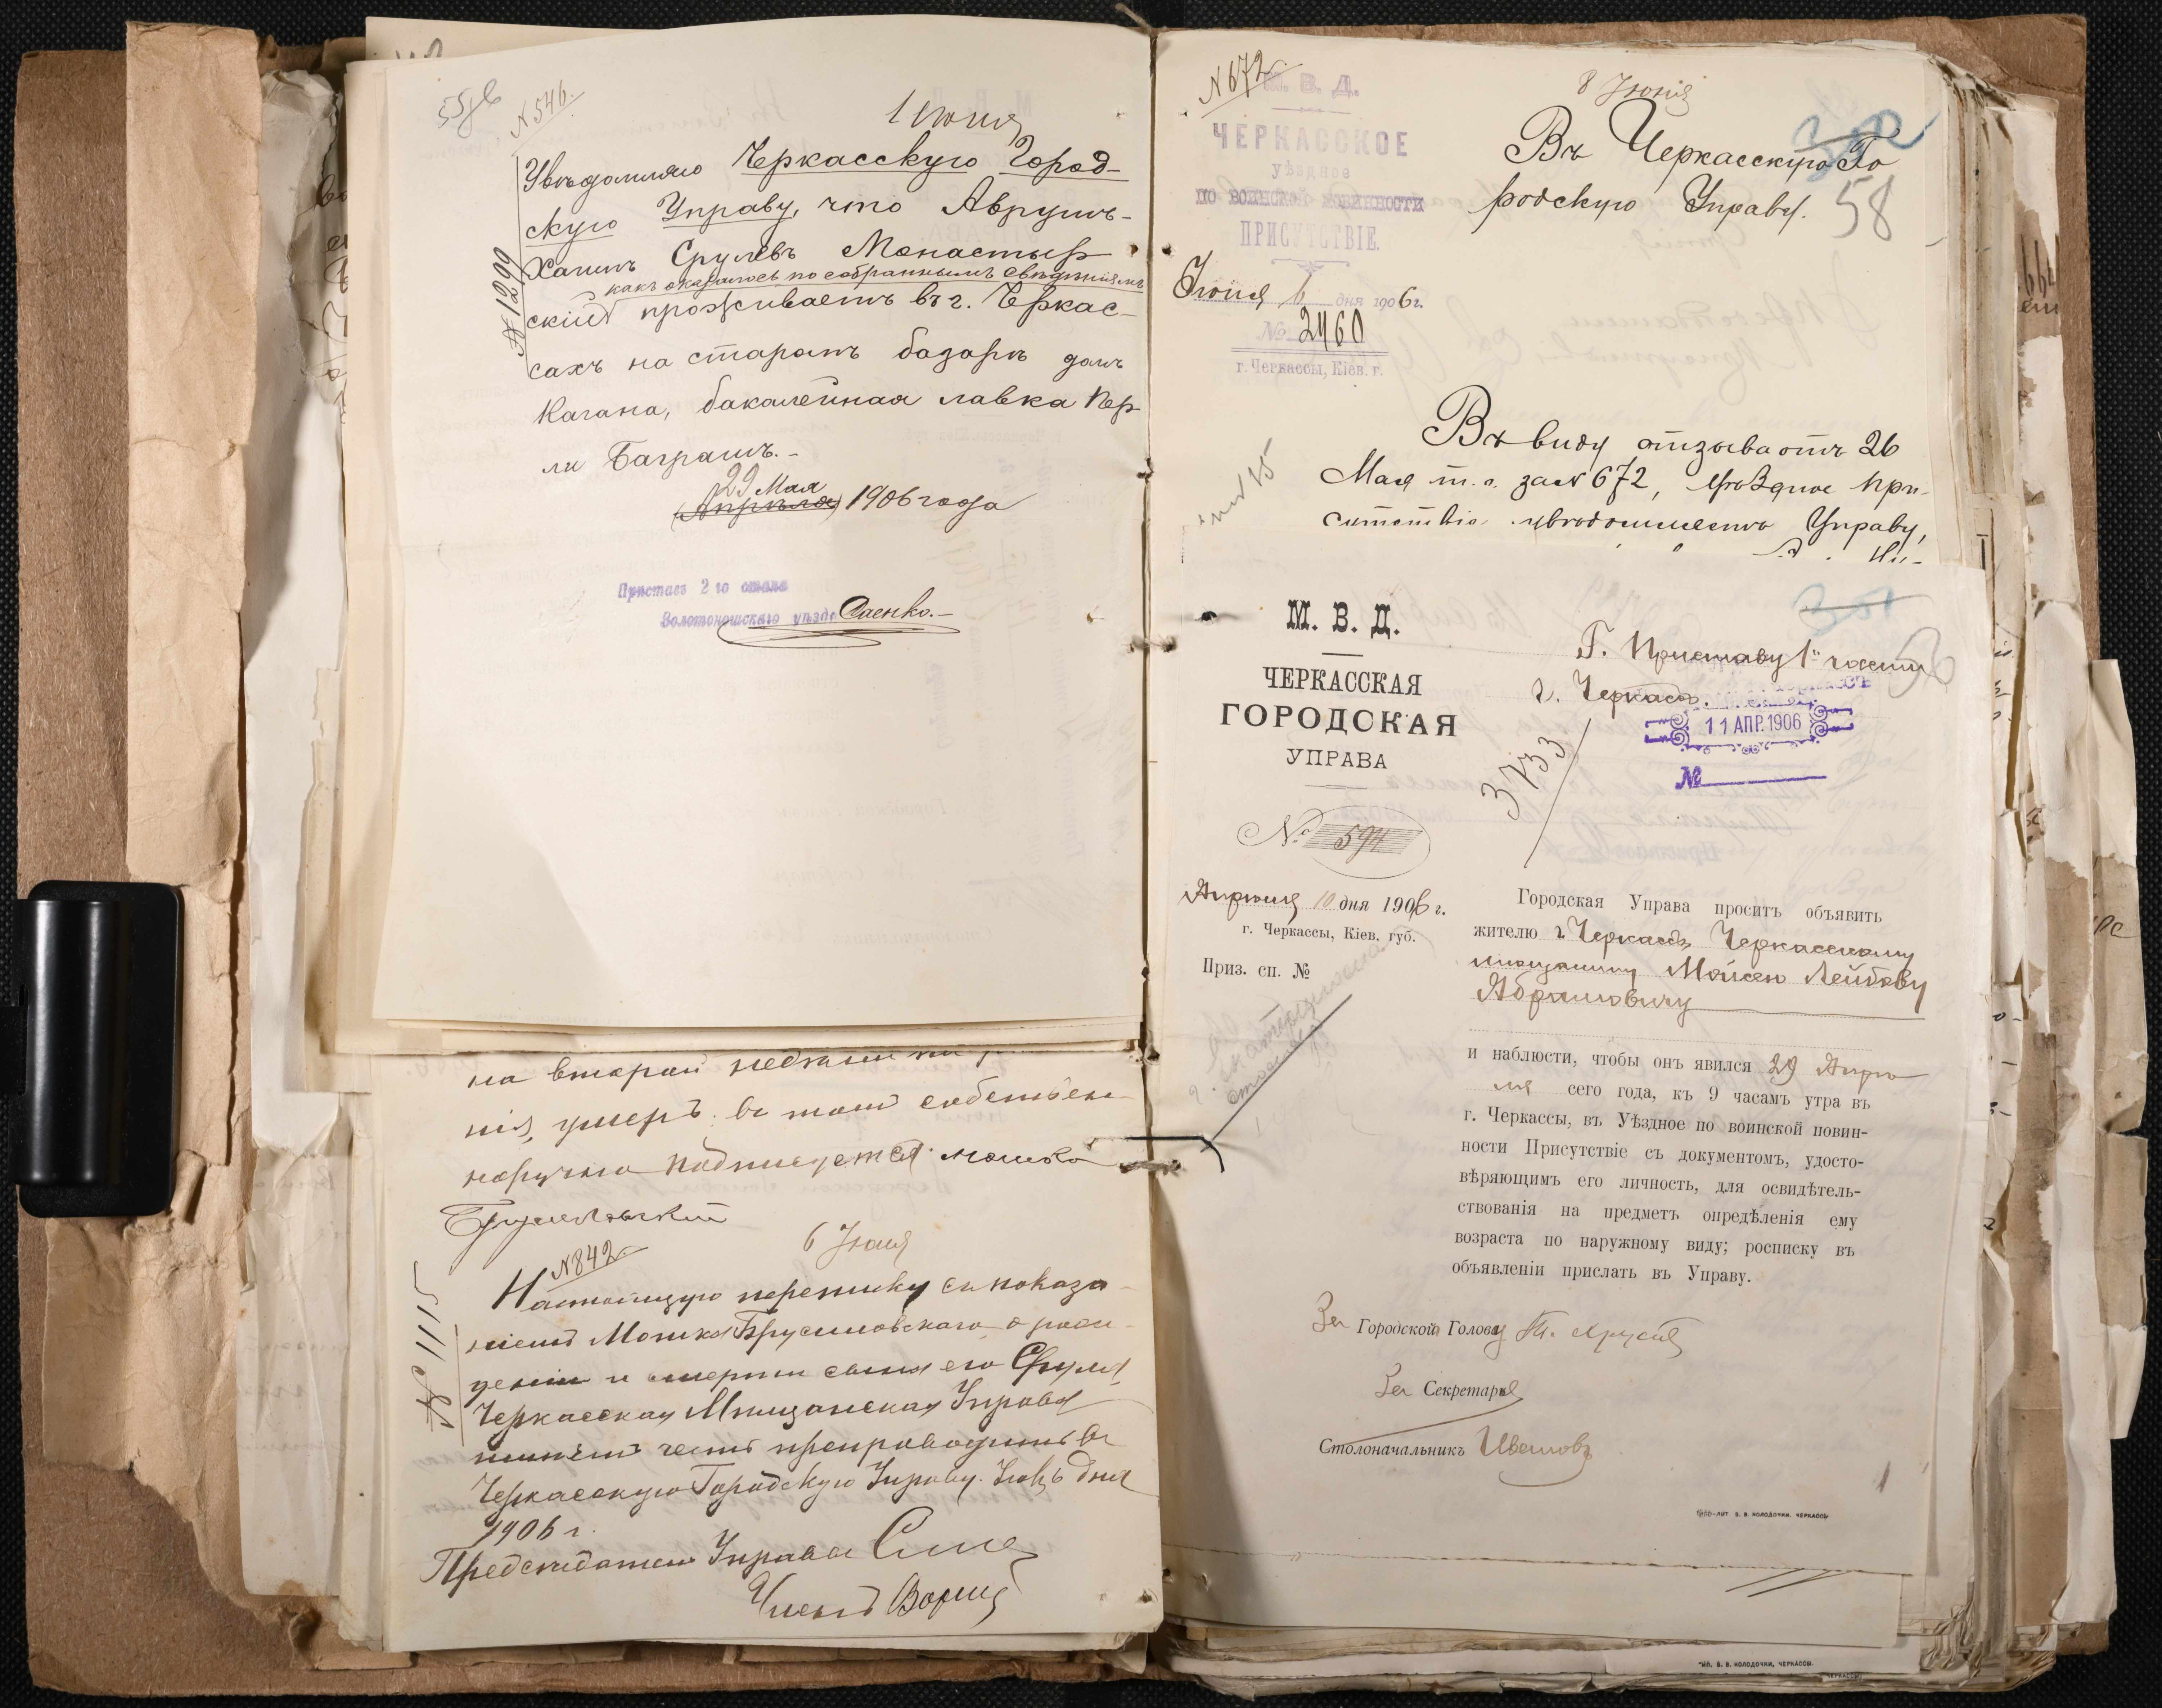 55об
N 546.
1 Июня
Увѣдомляю Черкасскую Город-
скую Управу, что Аврумъ-
Хаимъ Срулевъ Монастыр
какъ оказалось по собраннымъ свѣдѣніямъ
скій проживаетъ въ г. Черкас-
сахъ на старомъ базарѣ домъ
Кагана, бакалейная лавка Пер
ли Баграшъ.-
29 Мая
Апрѣля 1906 года
№ 1299
Приставъ 2 го стана
Золотоношскаго уѣзда Саенко.-
на второй недѣли
нія, умеръ. въ томъ собствен
норучно подписуемся мошко
Брусиловскій
N 842
6 Іюня
Настоящую переписку съ показа
ніемъ Мошка Брусиловскаго о рож-
деніи и смерти сына его Сруля,
Черкасская Мѣщанская Управа
имѣетъ честь препроводить въ
Черкасскую Городскую Управу. Іюня 6 дня
1906 г.
№ 1115
Предсѣдатель Управы
Членъ
N 672
8 Іюня
В. Д.
ЧЕРКАССКОЕ
уѣздное
ПО ВОИНСКОЙ ПОВИННОСТИ
ПРИСУТСТВІЕ.
Іюня 6 дня 1906 г.
№ 2460
г. Черкассы, Кіев. г.
Въ Черкасскую Го
родскую Управу.
58
Въ виду отзыва отъ 26
Мая т. г. за N 672, Уѣздное при-
сутствіе увѣдомляетъ Управу,
М. В. Д.
ЧЕРКАССКАЯ
ГОРОДСКАЯ
УПРАВА
№ 594
Апрѣля 10 дня 1906 г.
г. Черкассы, Кіев. губ.
Приз. сп. №
Г. Приставу 1й части
г. Черкассъ.
11 АПР. 1906
№
3733
Городская Управа проситъ объявить
жителю г. Черкассъ Черкасскому
мѣщанину Мойсею Лейбову
Абрамовичу
и наблюсти, чтобы онъ явился 29 Апрѣ
ля сего года, къ 9 часамъ утра въ
г. Черкассы, въ Уѣздное по воинской повин-
ности Присутствіе съ документомъ, удосто-
вѣряющимъ его личность, для освидѣтель-
ствованія на предметъ опредѣленія ему
возраста по наружному виду; росписку въ
объявленіи прислать въ Управу.
За Городской Голову
За Секретаря
Столоначальникъ Цвѣтовъ
ТИПО-ЛИТ В. В. КОЛОДОЧКИ, ЧЕРКАССЫ
ТИП. В. В. КОЛОДОЧКИ, ЧЕРКАССЫ.